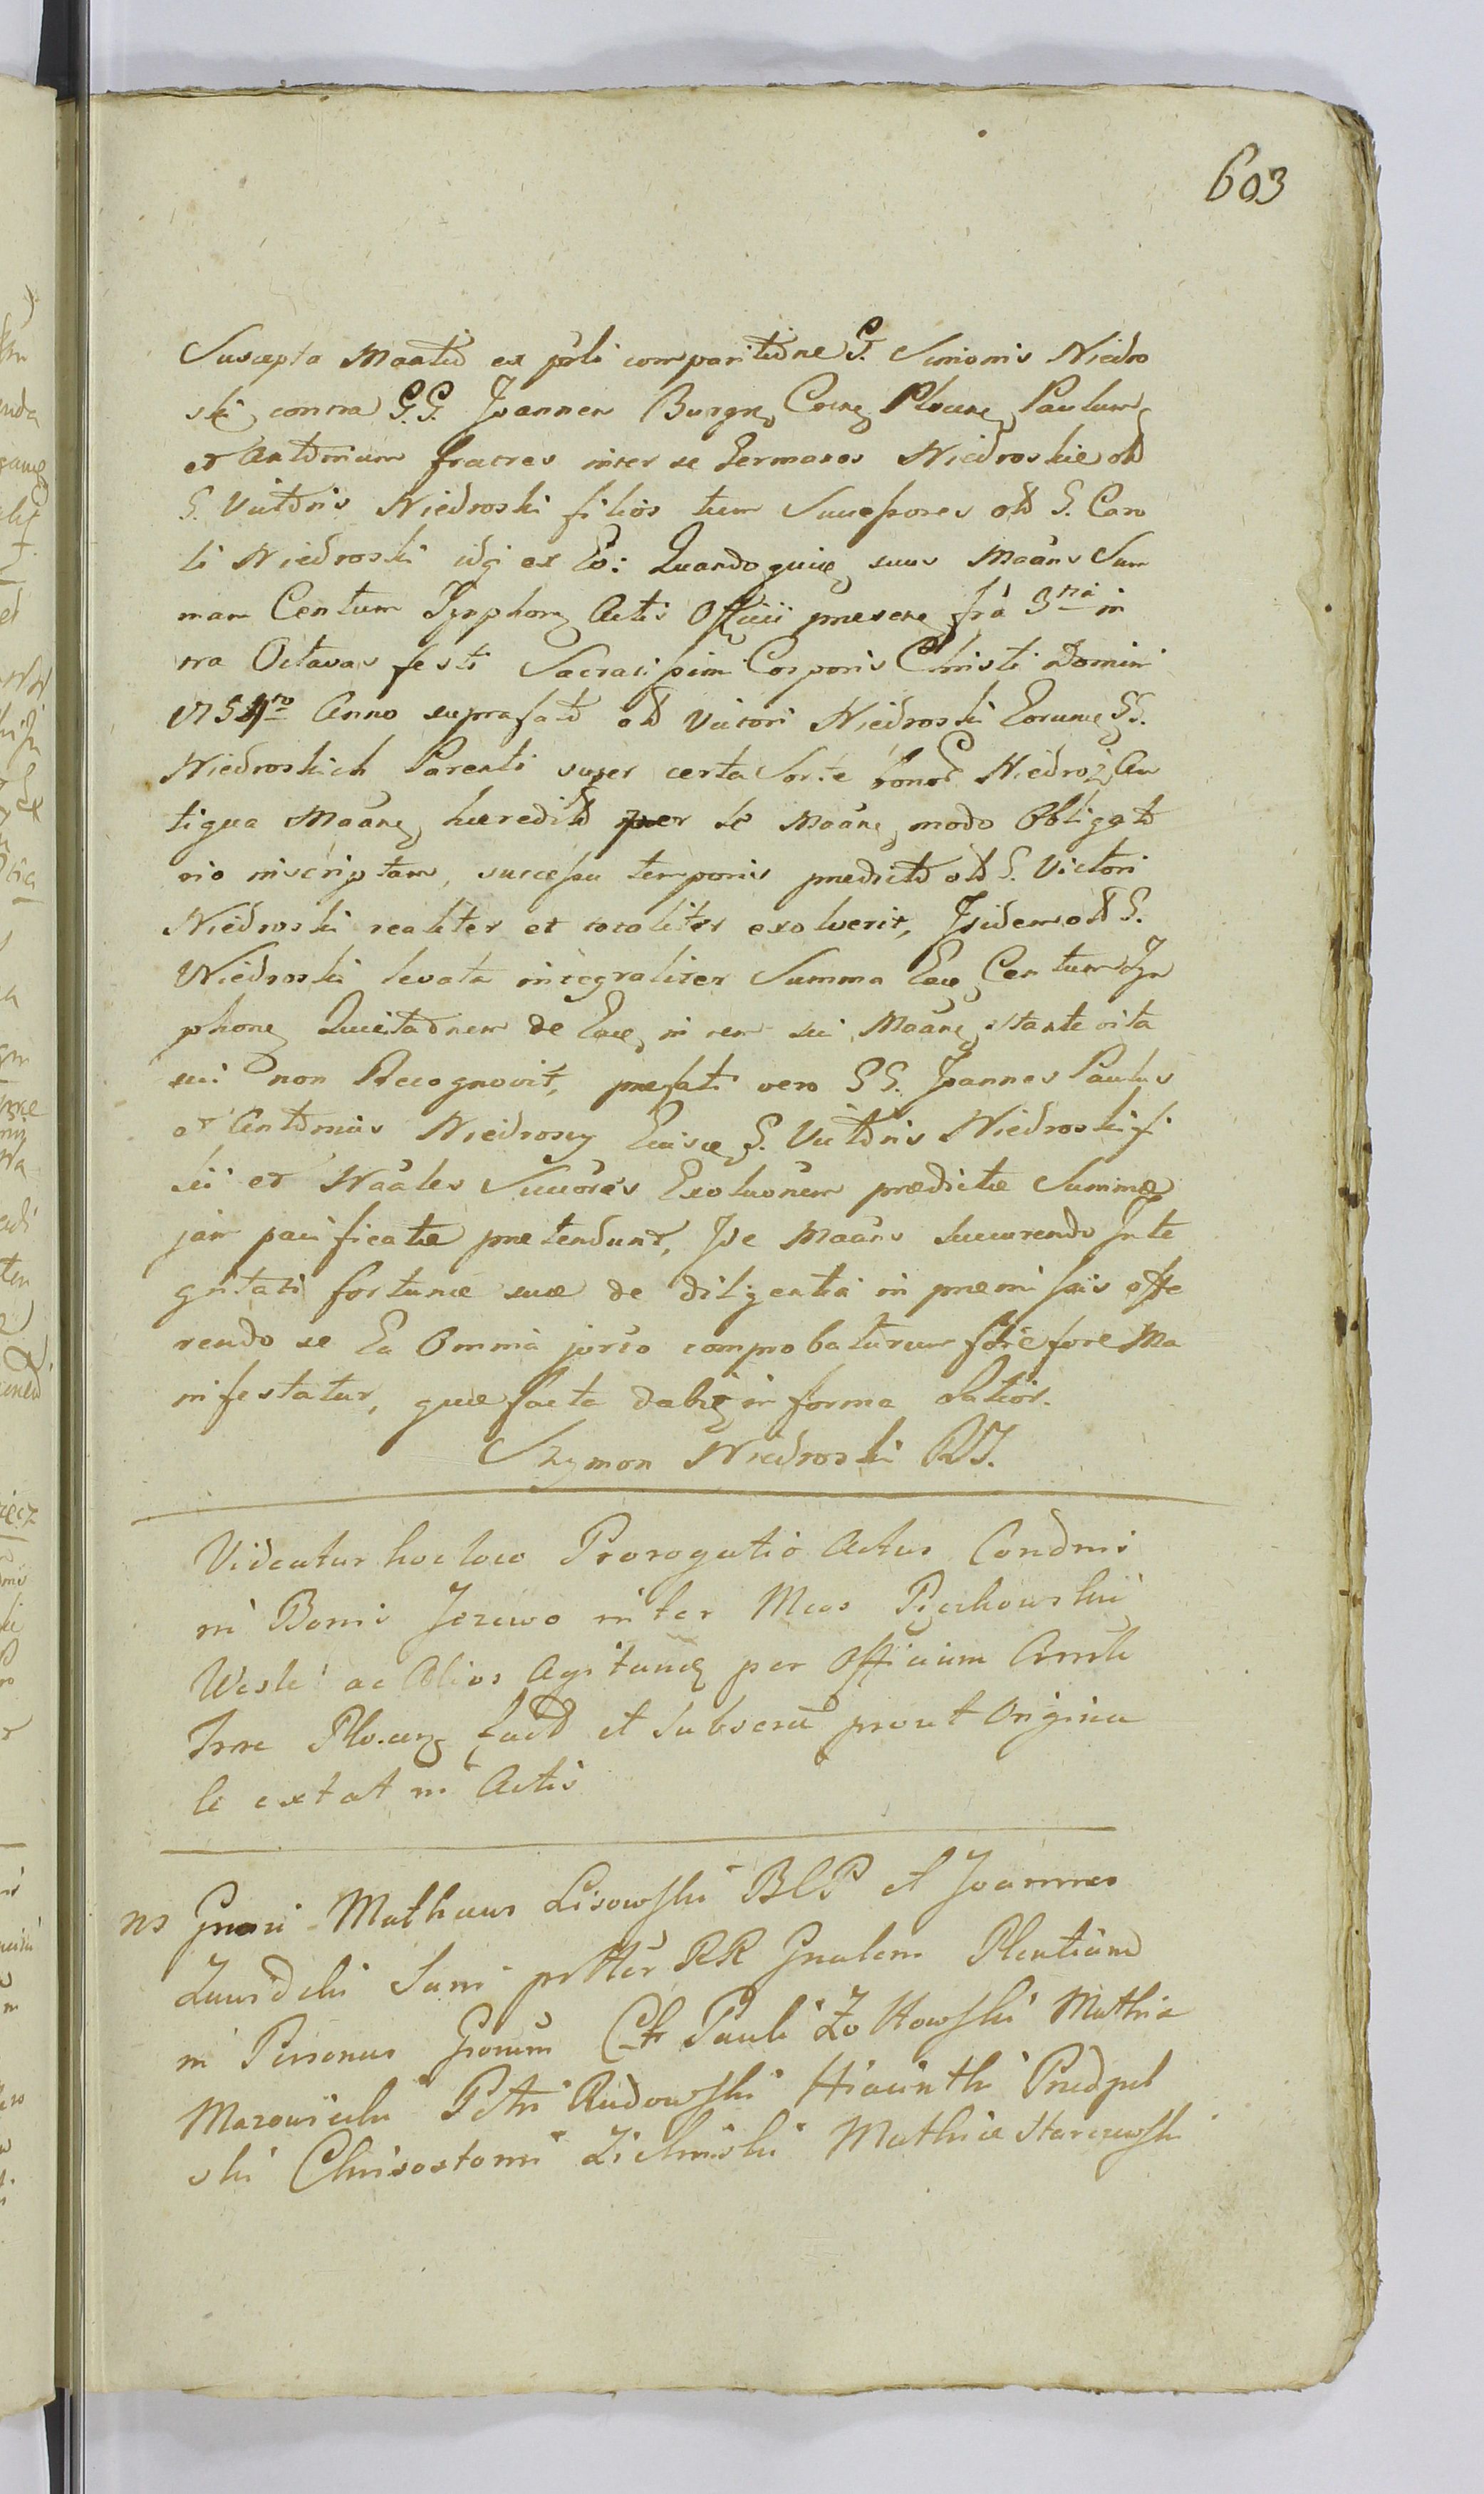 603
Suscepta Maatio ex psli comparitione G. Simonis Niedro
ski contra G.G. Joannem Burgm Cerne Plocene Paulum
et Antonium fratres inter se Germanos Niedroskie olt
G. Victoris Niedroski filios tum Successores olt G. Caro
li Niedroski idq ex Eo: Quando quia suus Maans Sum
mam Centum Tynphon Actis Officii presene fra 3tia in
tra Octavas festi Sacratissimi Corporis Christi Domini
1754to Anno suprafato olt Victori Niedroski Eorume GG.
Niedroskich Parenti super certa Sorte bonor Niedroz An
tiqua Maane haeredit per se Maane modo Obligato
rio inscriptam, successu temporis predicto olt G. Victori
Niedroski realiter et totaliter exolverit, Isidem olt G.
Niedroski levata integraliter Summa Eae Centum Tyn
phone Quietaonem de Eae in rem sui Maane stante vita
sui non Recognovit, prefati vero GG. Joannes Paulus
et Antonius Niedroscy Euisce G. Victoris Niedroski fi
lii et Naales Succores Exoluonem praedictae Summae
jam pacificatae pretendunt, Ise Maans succurendo Inte
gritati fortunae suae de diligentia in premissis offe
rendo se Ea Omnia jurto comprobaturum fore fore Ma
nifestatur, quae facta dabit in forma Patior.
Szymon Niedroski RS.
Videatur hoc loco Prorogatio Actus Condnis
in Bonis Jezewo inter Mcos Piechowski
Weslii ac Alios Agitande per Officium Castr
Trre Plocens fact et Subscru prout Origina
le extat in Actis
ns Gnosi Mathaeus Lisowski BCP et Joannes
Zawidzki Sani pstter RR Gnalem Plentiam
in Personas Gsorum Ctr Pauli Zołtowski Mathia
Mazowiecki Petri Rudowski Hiacinthi Predpel
ski Chrisostomi Zielinski Mathiae Starzewski